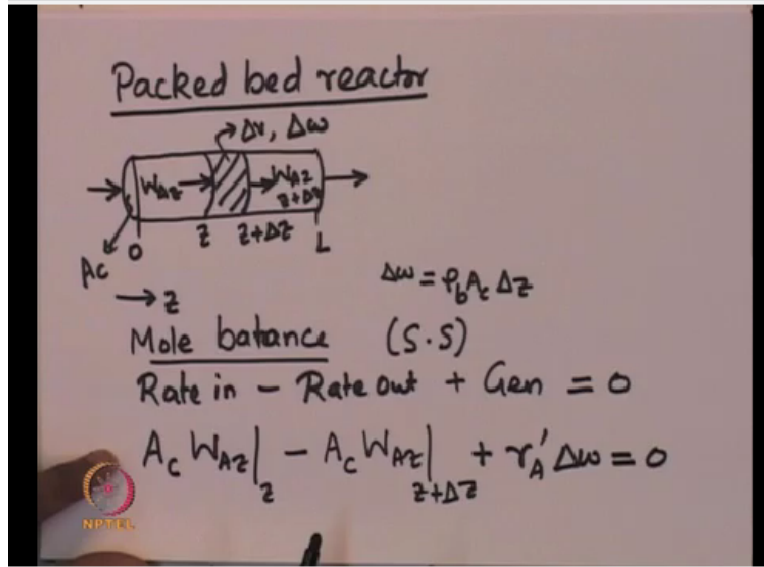 Packed bed reactor
Δv, Δw
W_Az
W_Az z+Δz
0 z z+Δz L
Ac
→ z
Δw = ρ_b A_c Δz
Mole balance (S.S)
Rate in - Rate out + Gen = 0
A_c W_Az|_z - A_c W_Az|_z+Δz + r_A' Δw = 0
NPTEL